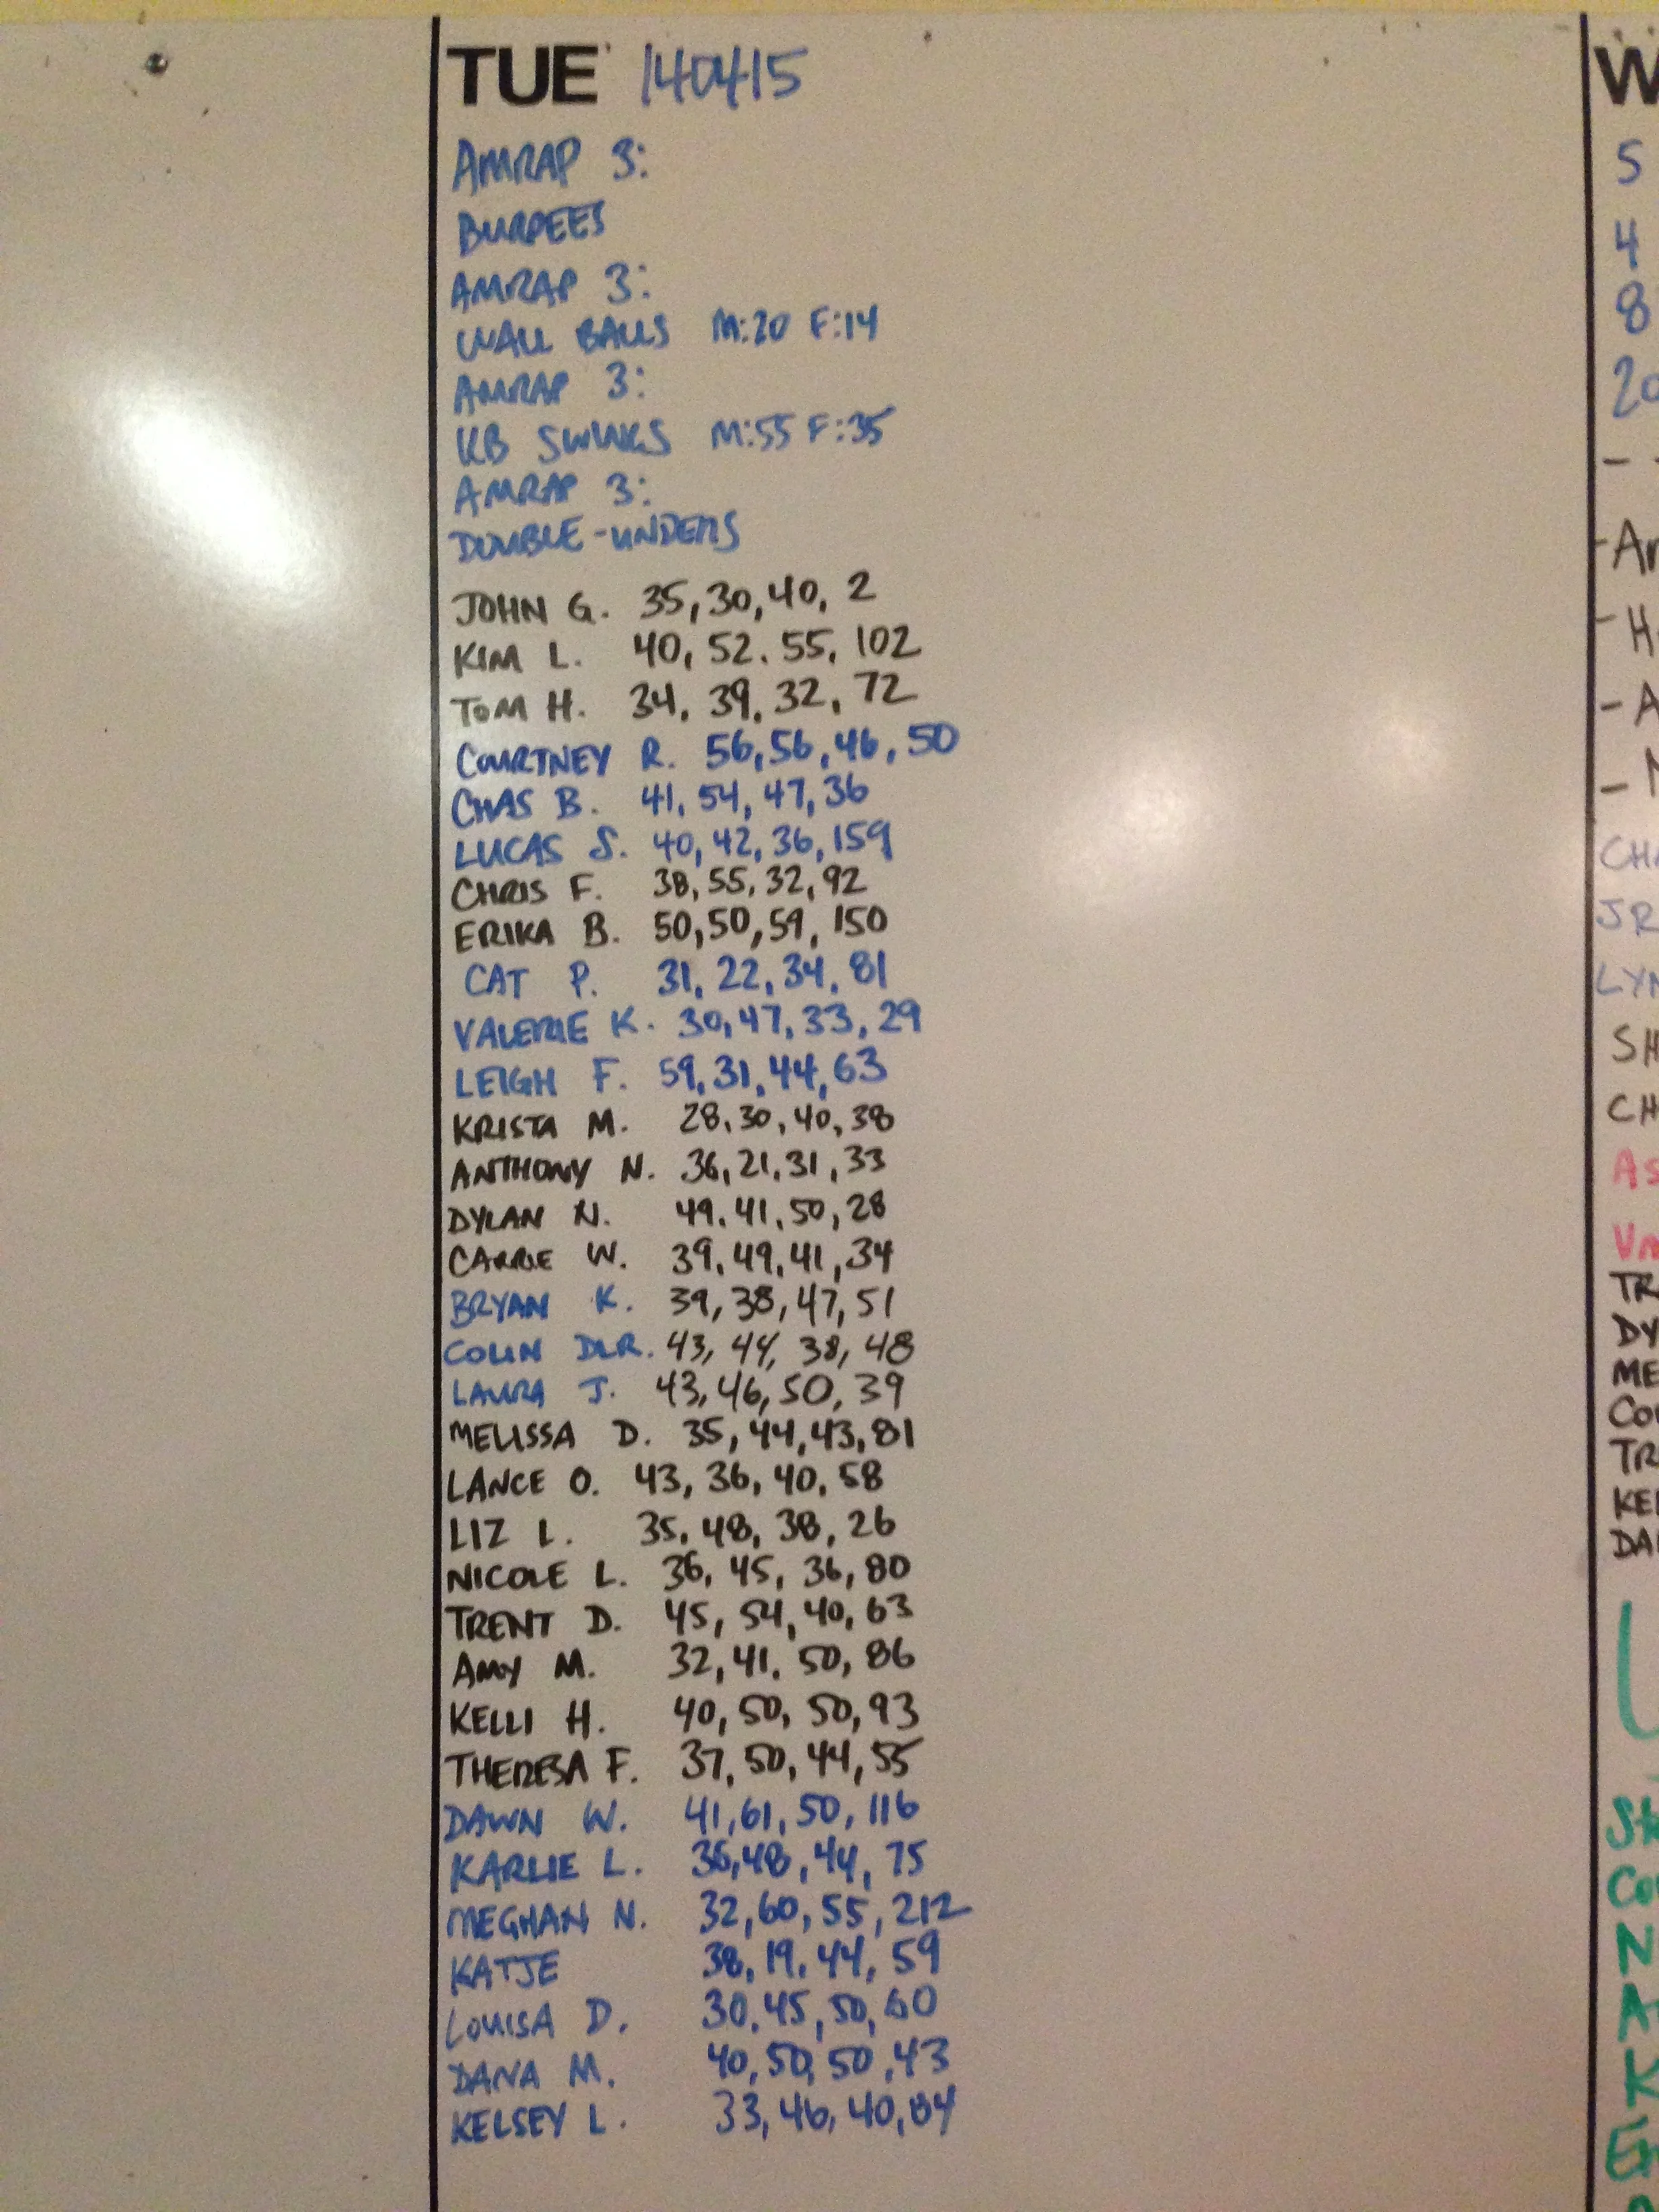 TUE 140415
AMRAP 3:
BURPEES
AMRAP 3:
WALL BALLS M:20 F:14
AMRAP 3:
KB SWINGS M:55 F:35
AMRAP 3:
DOUBLE-UNDERS
JOHN G. 35,30,40, 2
KIM L. 40, 52. 55, 102
TOM H. 34, 39, 32, 72
COURTNEY R. 56,56,46,50
CHAS B. 41, 54, 47, 36
LUCAS S. 40, 42, 36, 159
CHRIS F. 38, 55, 32, 92
ERIKA B. 50,50,59, 150
CAT P. 31, 22, 34, 81
VALERIE K. 30,47,33,29
LEIGH F. 59,31,44,63
KRISTA M. 28,30,40,38
ANTHONY N. 36,21,31,33
DYLAN N. 49,41,50,28
CARRIE W. 39,49,41,34
BRYAN K. 39,38,47,51
COLIN DLR. 43, 44, 38, 48
LAURA J. 43,46,50,39
MELISSA D. 35,44,43,81
LANCE O. 43, 36, 40, 58
LIZ L. 35, 48, 38, 26
NICOLE L. 36, 45, 36, 80
TRENT D. 45, 54, 40, 63
AMY M. 32,41, 50, 86
KELLI H. 40, 50, 50, 93
THERESA F. 37, 50, 44, 55
DAWN W. 41,61,50, 116
KARLIE L. 36,48,44, 75
MEGHAN N. 32,60,55,212
KATJE 38, 19, 44, 59
LOUISA D. 30,45,50,60
DANA M. 40,50,50,43
KELSEY L. 33,46,40,84
W
5
4
8
20
-
-
- H
- A
-
CHA
JR
LYN
SH
CH
AS
TR
DY
ME
COU
TR
KEL
DA
N
A
K